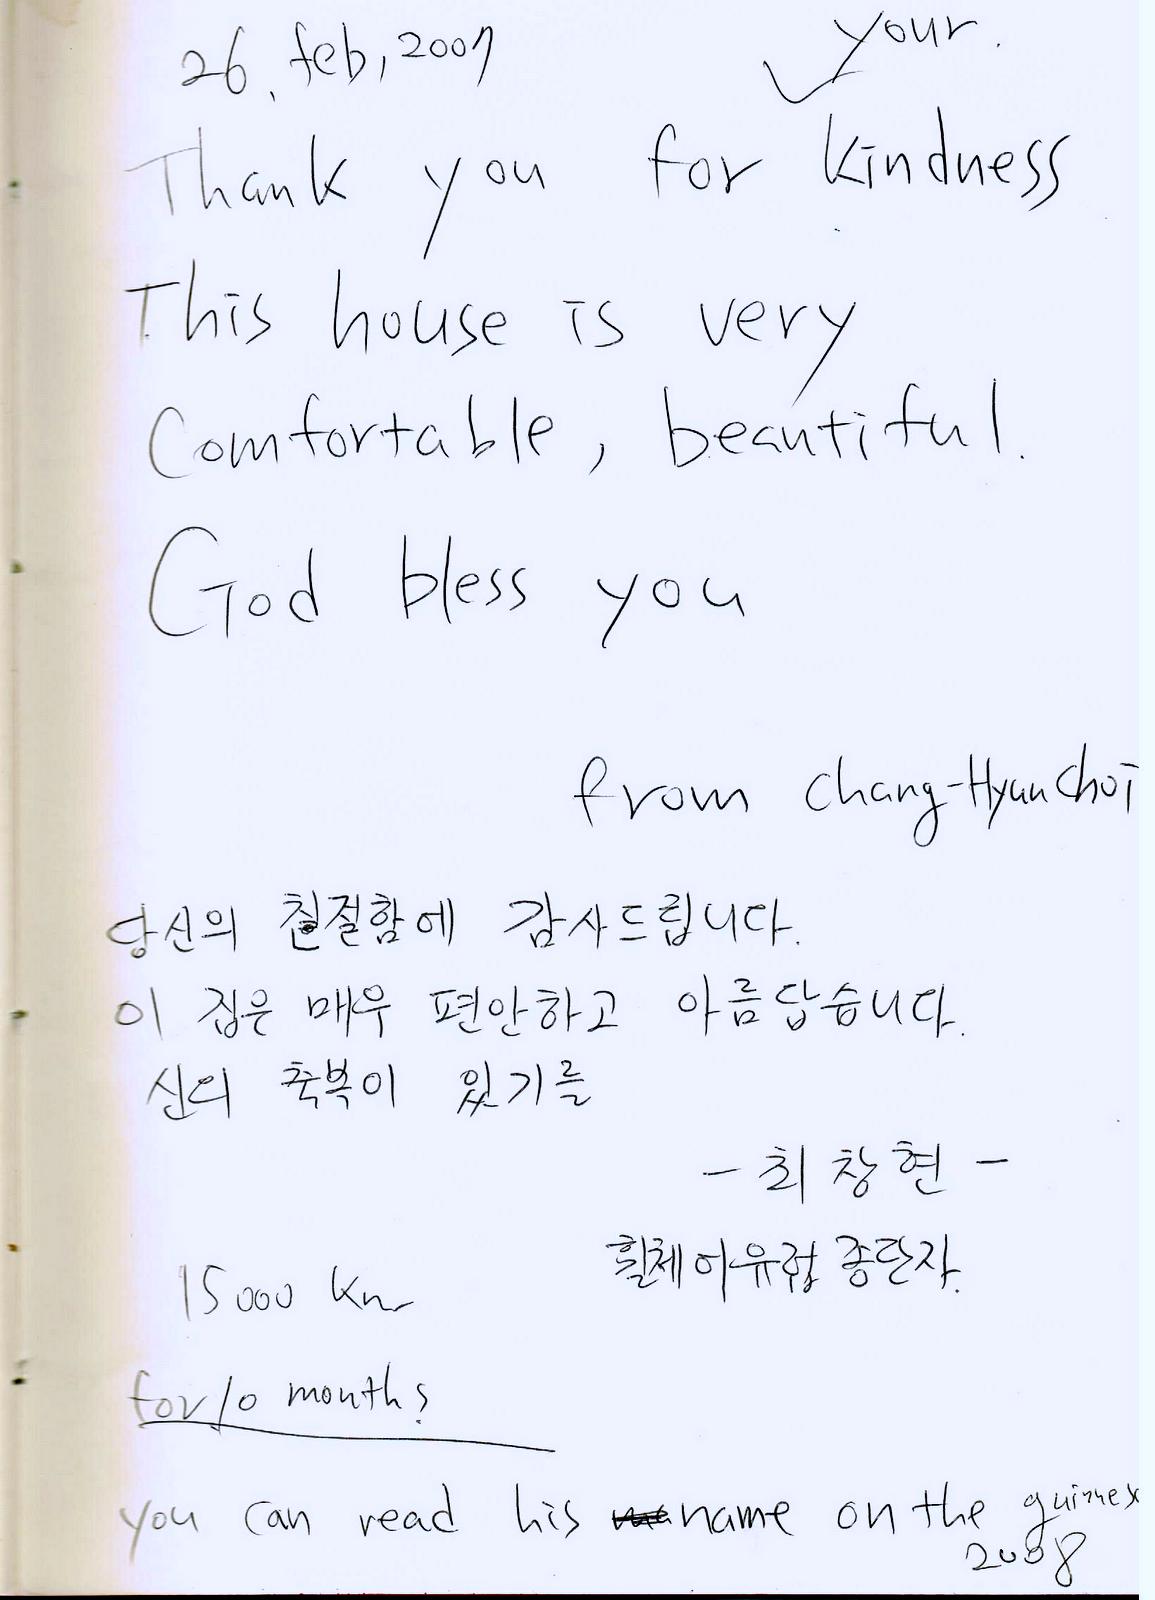 26. feb, 2007
your.
Thank you for kindness
This house is very
Comfortable, beautiful.
God bless you
from Chang-Hyun Choi
당신의 친절함에 감사드립니다.
이 집은 매우 편안하고 아름답습니다.
신의 축복이 있기를
- 최창현 -
휠체어유럽 종단자.
15000 Km
for 10 months
you can read his name on the guinnes
2008